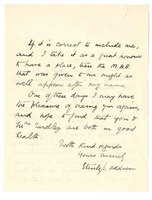 If it is correct to include me,
and I take it as a great honour
to have a place, then the M.B.E.
that was given to me might as
well appear after my name.
One of these days I may have
the pleasure of seeing you again,
and hope to find that you &
Mrs Tundley are both in good
health
With kind regards
Yours sincerely
Stanley